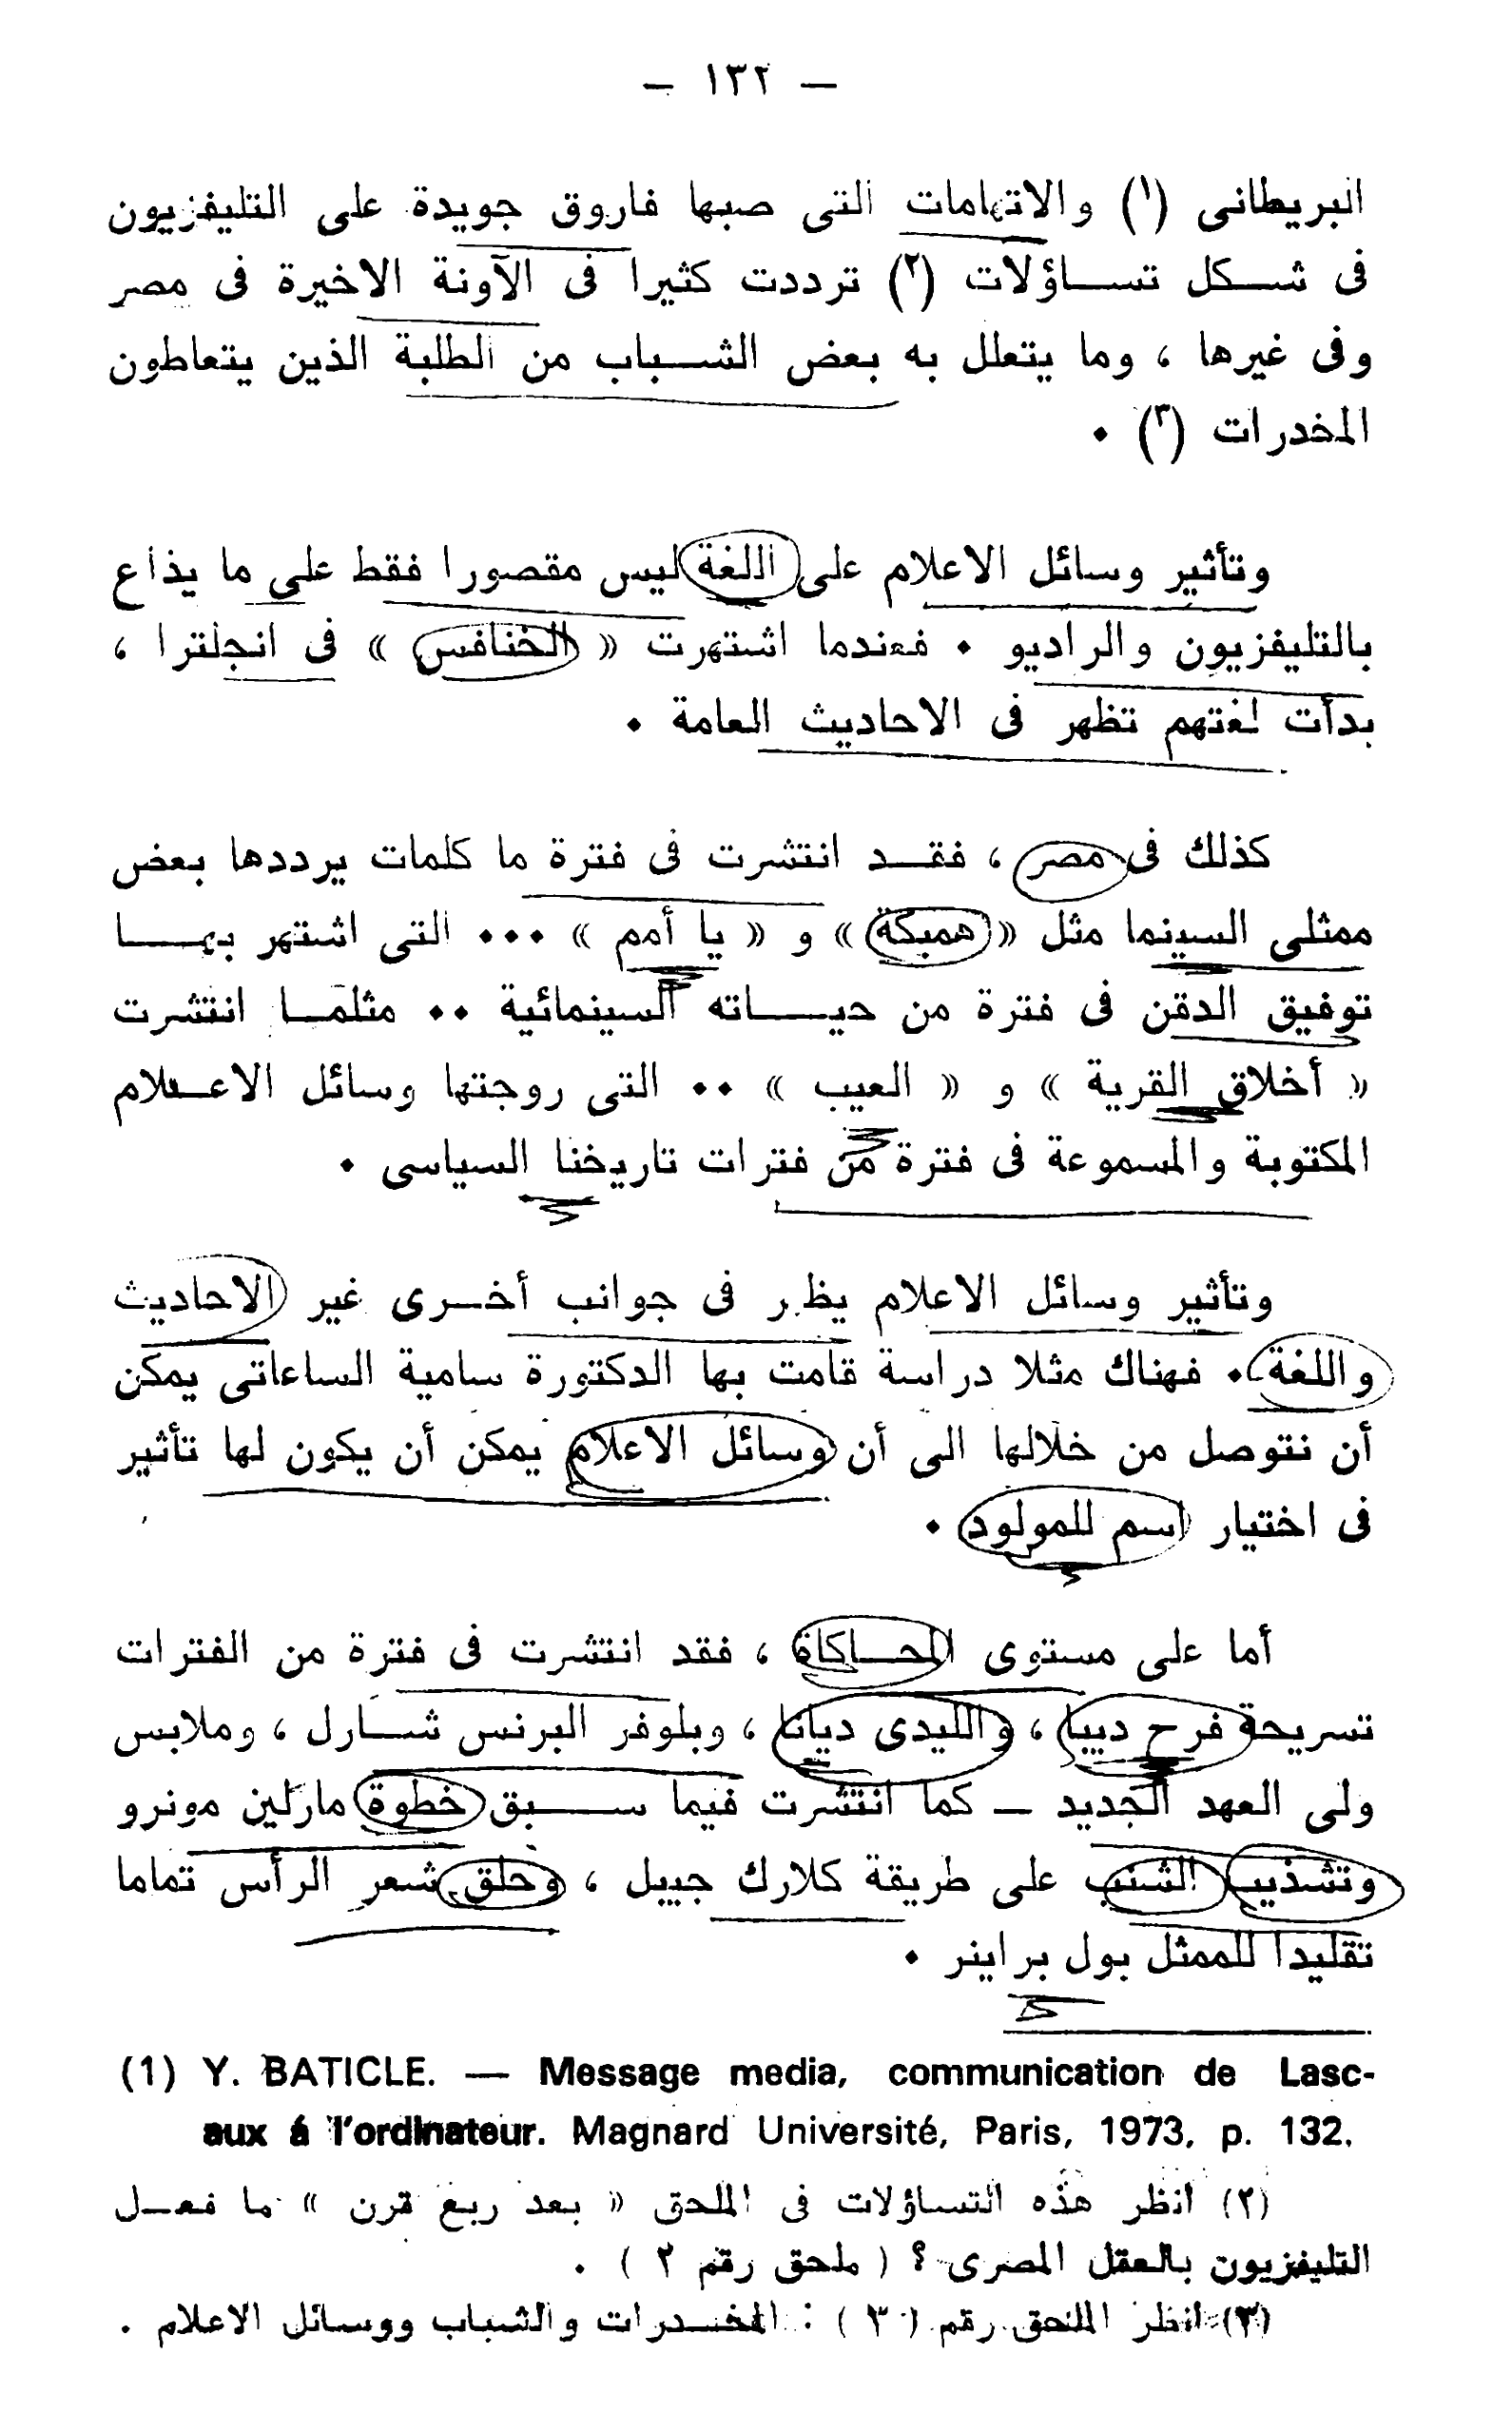 — ١٣٢ —
البريطانى (١) والاتهامات التى صبها فاروق جويدة على التليفزيون
فى شكل تساؤلات (٢) ترددت كثيرا فى الآونة الاخيرة فى مصر
وفى غيرها ، وما يتعلل به بعض الشباب من الطلبة الذين يتعاطون
المخدرات (٣) .
وتأثير وسائل الاعلام على اللغة ليس مقصورا فقط على ما يذاع
بالتليفزيون والراديو . فعندما اشتهرت « الخنافس » فى انجلترا ،
بدأت لغتهم تظهر فى الاحاديث العامة .
كذلك فى مصر ، فقد انتشرت فى فترة ما كلمات يرددها بعض
ممثلى السينما مثل « همبكة » و « يا أمم » ... التى اشتهر بها
توفيق الدقن فى فترة من حياته السينمائية .. مثلما انتشرت
« أخلاق القرية » و « العيب » .. التى روجتها وسائل الاعلام
المكتوبة والمسموعة فى فترة من فترات تاريخنا السياسى .
وتأثير وسائل الاعلام يظهر فى جوانب أخرى غير الاحاديث
واللغة . فهناك مثلا دراسة قامت بها الدكتورة سامية الساعاتى يمكن
أن نتوصل من خلالها الى أن وسائل الاعلام يمكن أن يكون لها تأثير
فى اختيار اسم للمولود .
أما على مستوى المحاكاة ، فقد انتشرت فى فترة من الفترات
تسريحة فرح ديبا ، والليدى ديانا ، وبلوفر البرنس شارل ، وملابس
ولى العهد الجديد — كما انتشرت فيما سبق خطوة مارلين مونرو
وتشذيب الشنب على طريقة كلارك جيبل ، وحلق شعر الرأس تماما
تقليدا للممثل بول براينر .
(1) Y. BATICLE. — Message media, communication de Lasc-
aux á l'ordinateur. Magnard Université, Paris, 1973, p. 132.
(٢) انظر هذه التساؤلات فى الملحق « بعد ربع قرن » ما فعل
التليفزيون بالعقل المصرى ؟ ( ملحق رقم ٢ ) .
(٣) انظر الملحق رقم ( ٣ ) : المخدرات والشباب ووسائل الاعلام .